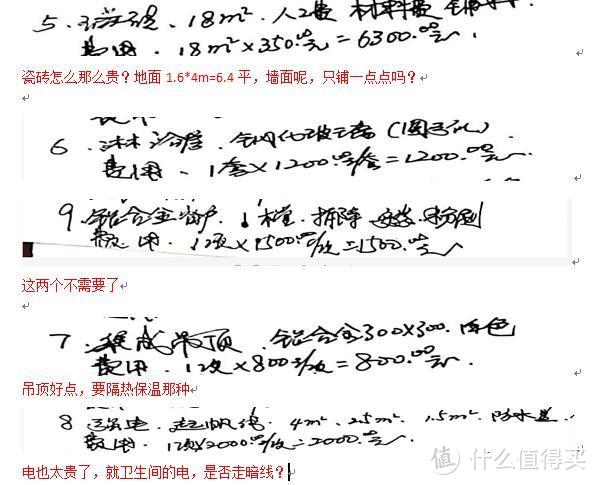 5、瓷砖、18m²、人工费 材料费 铺
费用、18m²×350.00元=6300.00元
瓷砖怎么那么贵？地面 1.6*4m=6.4 平，墙面呢，只铺一点点吗？
6、沐浴 钢化玻璃 (圆弧)
费用、1套×1200.00/套=1200.00元
9、铝合金 拆除 安装
费用、1次×1500.00/次=1500.00元
这两个不需要了
7、集成吊顶、铝合金300×300、白色
费用、1次×800元/次=800.00元
吊顶好点，要隔热保温那种
8 强电、4m²、2.5m²、1.5m²、防水
费用、1次×2000.00/次=2000.00元
电也太贵了，就卫生间的电，是否走暗线？
值 什么值得买